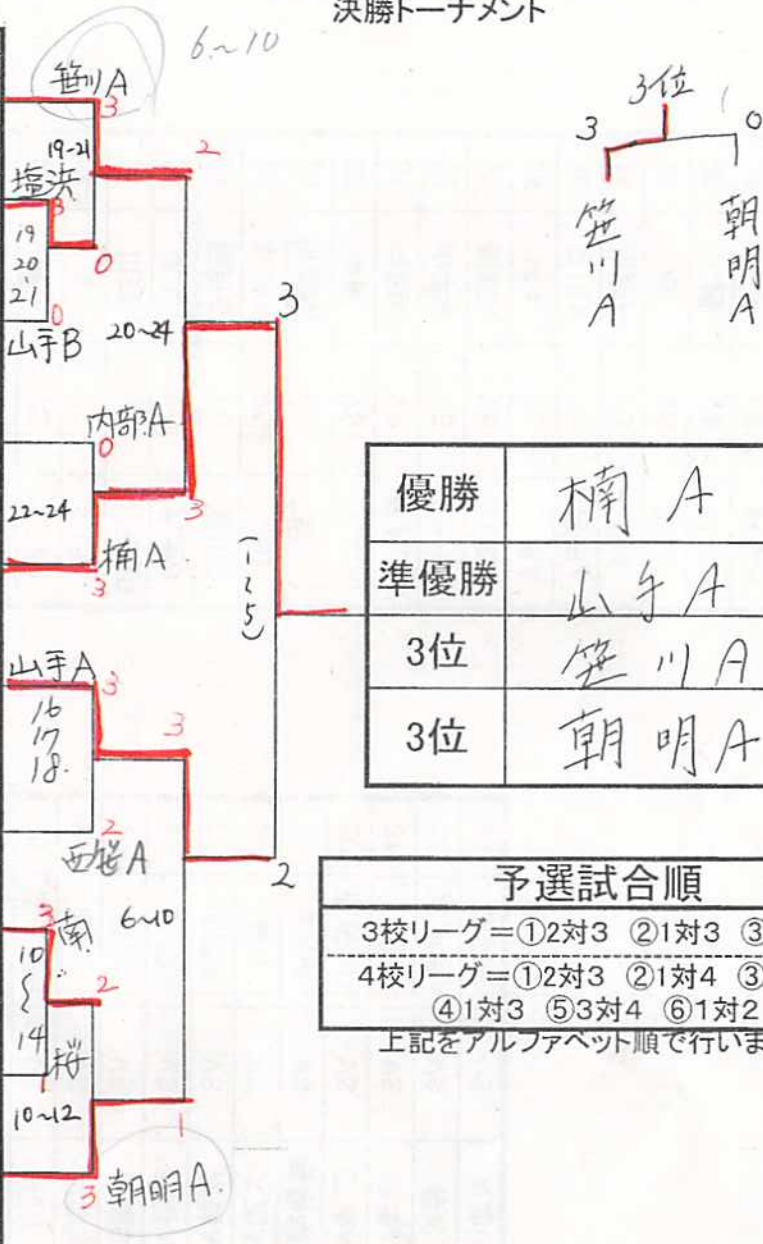 決勝トーナメント
6~10
笹川A
3
19-21
2
塩浜
3
19
20
21
0
0
山手B
20~24
3
内部A
0
22~24
3
楠A
3
(1~5)
山手A
3
16
17
18.
3
2
西笹A
2
3
南
6~10
10
~
14
2
桜
10~12
1
3
朝明A.
3位
3
0
笹川A
朝明A
優勝 楠 A
準優勝 山手A
3位 笹川A
3位 朝明A
予選試合順
3校リーグ=①2対3 ②1対3 ③
4校リーグ=①2対3 ②1対4 ③
④1対3 ⑤3対4 ⑥1対2
上記をアルファベット順で行いま